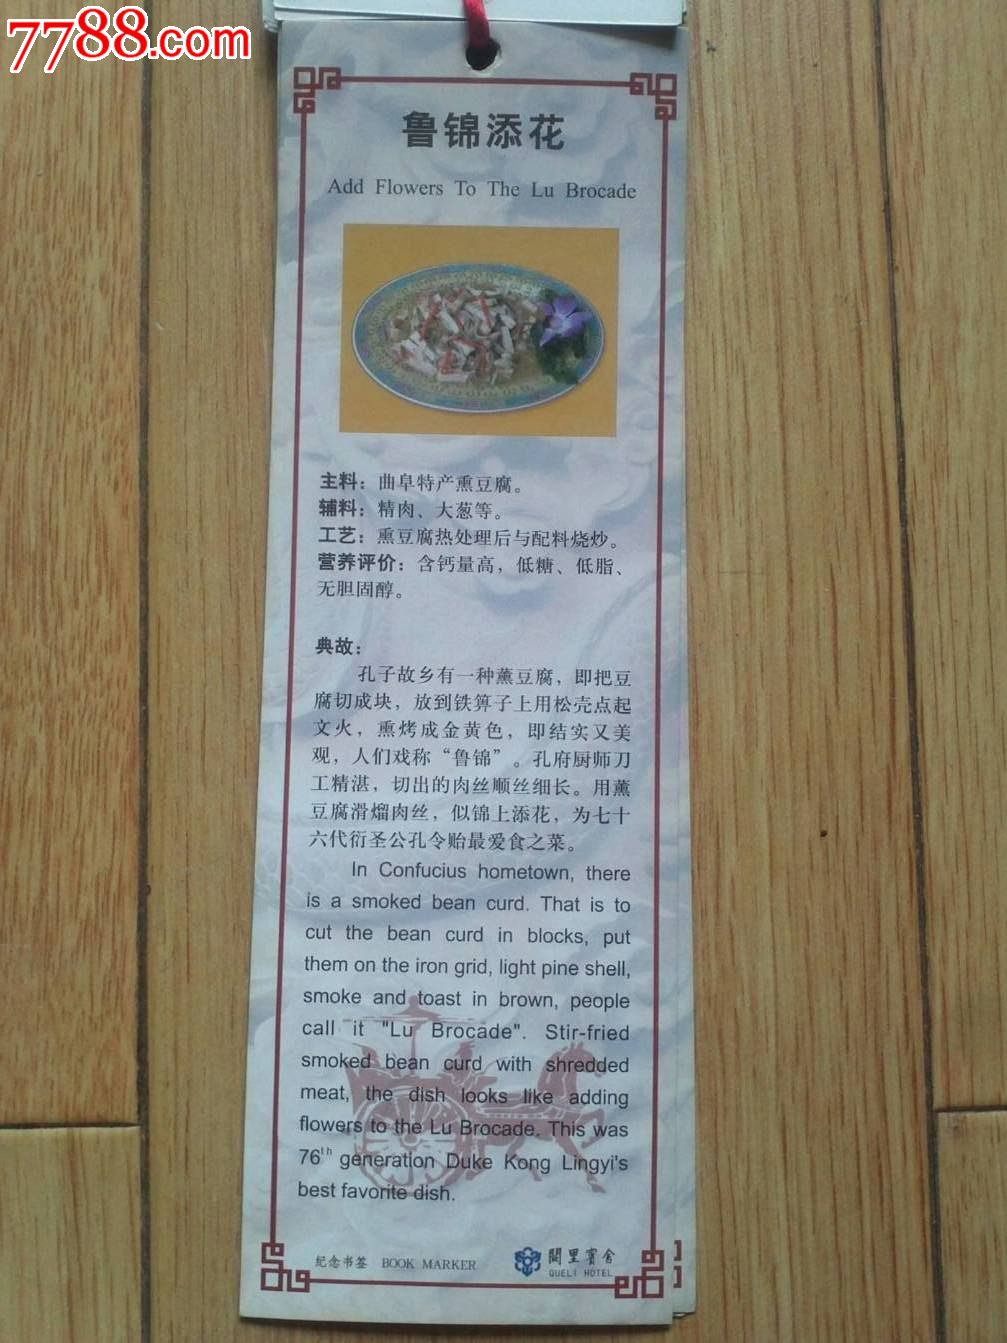 7788.com
鲁锦添花
Add Flowers To The Lu Brocade
主料：曲阜特产熏豆腐。
辅料：精肉、大葱等。
工艺：熏豆腐热处理后与配料烧炒。
营养评价：含钙量高，低糖、低脂、
无胆固醇。
典故：
孔子故乡有一种薰豆腐，即把豆
腐切成块，放到铁箅子上用松壳点起
文火，熏烤成金黄色，即结实又美
观，人们戏称“鲁锦”。孔府厨师刀
工精湛，切出的肉丝顺丝细长。用薰
豆腐滑熘肉丝，似锦上添花，为七十
六代衍圣公孔令贻最爱食之菜。
In Confucius hometown, there
is a smoked bean curd. That is to
cut the bean curd in blocks, put
them on the iron grid, light pine shell,
smoke and toast in brown, people
call it "Lu Brocade". Stir-fried
smoked bean curd with shredded
meat, the dish looks like adding
flowers to the Lu Brocade. This was
76th generation Duke Kong Lingyi's
best favorite dish.
纪念书签 BOOK MARKER
闕里賓舍
QUELI HOTEL